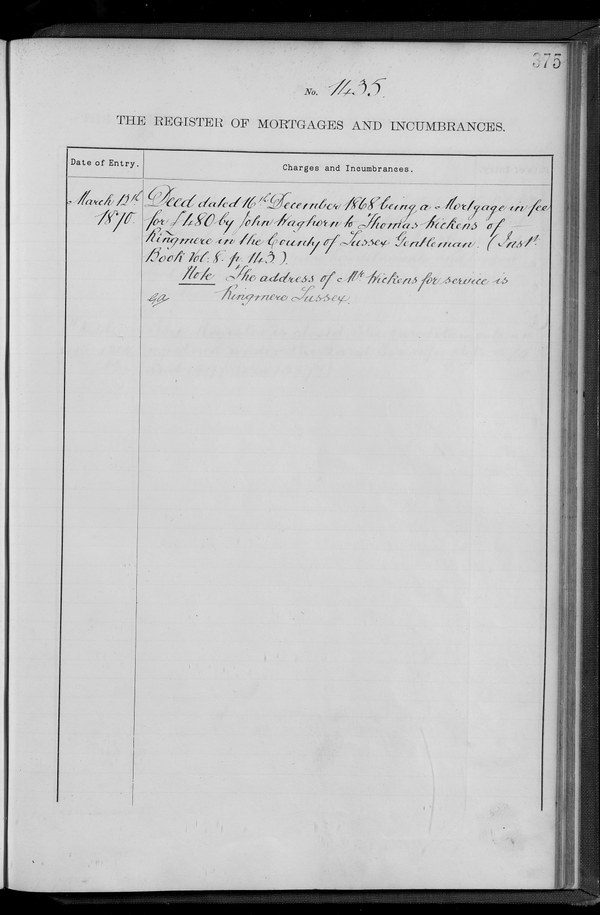 375
No. 1435.
THE REGISTER OF MORTGAGES AND INCUMBRANCES.
Date of Entry.
Charges and Incumbrances.
March 15th
1870.
Deed dated 16th December 1868 being a Mortgage in fee
for £480 by John Waghorn to Thomas Wickens of
Ringmere in the County of Sussex Gentleman. (Inst.
Book Vol. 8. p. 143).
Note The address of Mr Wickens for service is
Ringmere Sussex.